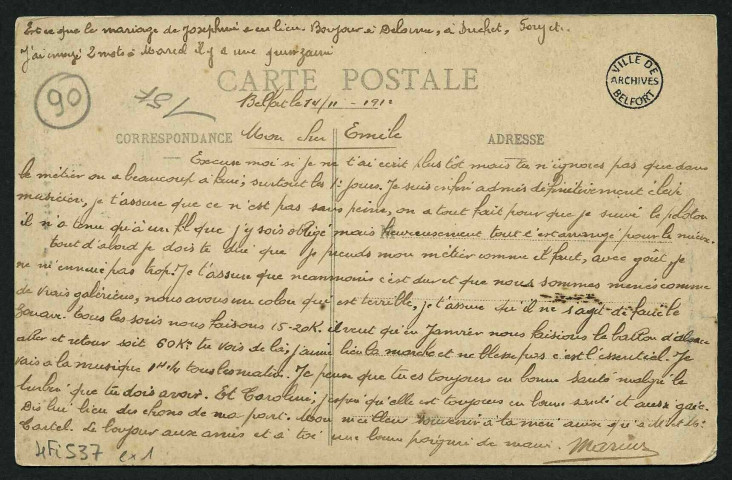 Est ce que le mariage de Josephine a eu lieu. Bonjour à Delorme, à Suchet,
J'ai envoyé 2 mots à Marcel il y a une quinzaine
CARTE POSTALE
VILLE DE
ARCHIVES
BELFORT
90
Belfort le 14/11 - 191
CORRESPONDANCE
ADRESSE
Mon cher Emile
Excuse moi si je ne t'ai ecrit plus tôt mais tu n'ignores pas que dans
le métier on a beaucoup à faire, surtout les 1ers jours. Je suis enfin admis définitivement élève
musicien, je t'assure que ce n'est pas sans peine, on a tout fait pour que je suive le peloton
il n'a tenu qu'à un fil que j'y sois obligé mais heureusement tout s'est arrangé pour le mieux.
tout d'abord je dois te dire que je prends mon métier comme il faut, avec goût, je
ne m'ennuie pas trop. Je t'assure que neanmoins c'est dur et que nous sommes menés comme
de vrais galériens, nous avons un colon qui est terrible, je t'assure qu'il ne s'agit de faire le
zouave. tous les soirs nous faisons 15-20K. il veut qu'en Janvier nous faisions le ballon d'alsace
aller et retour soit 60K. tu vois de là, j'aime bien la marche et ne blesse pas c'est l'essentiel. Je
vais à la musique tous les matins. Je pense que tu es toujours en bonne santé malgré le
turbin que tu dois avoir. Et Caroline, j'espère qu'elle est toujours en bonne santé et aussi gaie.
Dis lui bien des choses de ma part. Mon meilleur souvenir à ta mère ainsi qu'à M. et Me
Castel. Le bonjour aux amis et à toi une bonne poignée de main. Marius
4Fi537
ex 1